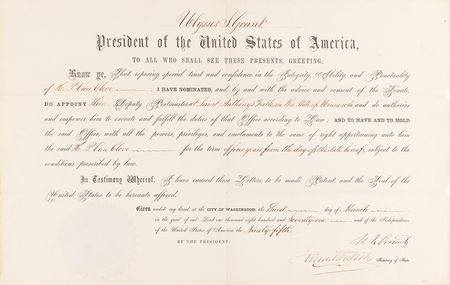 Ulysses S. Grant
President of the United States of America,
TO ALL WHO SHALL SEE THESE PRESENTS, GREETING:
Know ye, That reposing special trust and confidence in the Integrity, Ability, and Punctuality
of H. P. Van Cleve I HAVE NOMINATED, and, by and with the advice and consent of the Senate,
DO APPOINT him Deputy Postmaster at Saint Anthony's Falls, in the State of Minnesota, and do authorize
and empower him to execute and fulfill the duties of that Office according to Law; AND TO HAVE AND TO HOLD
the said Office, with all the powers, privileges, and emoluments to the same of right appertaining unto him
the said H. P. Van Cleve for the term of four years from the day of the date hereof, subject to the
conditions prescribed by law.
In Testimony Whereof, I have caused these Letters to be made Patent, and the Seal of the
United States to be hereunto affixed.
Given under my hand, at the CITY OF WASHINGTON, the Third day of March
in the year of our Lord one thousand eight hundred and Seventy-one and of the Independence
of the United States of America the Ninety-fifth.
U. S. Grant
BY THE PRESIDENT:
Hamilton Fish Secretary of State